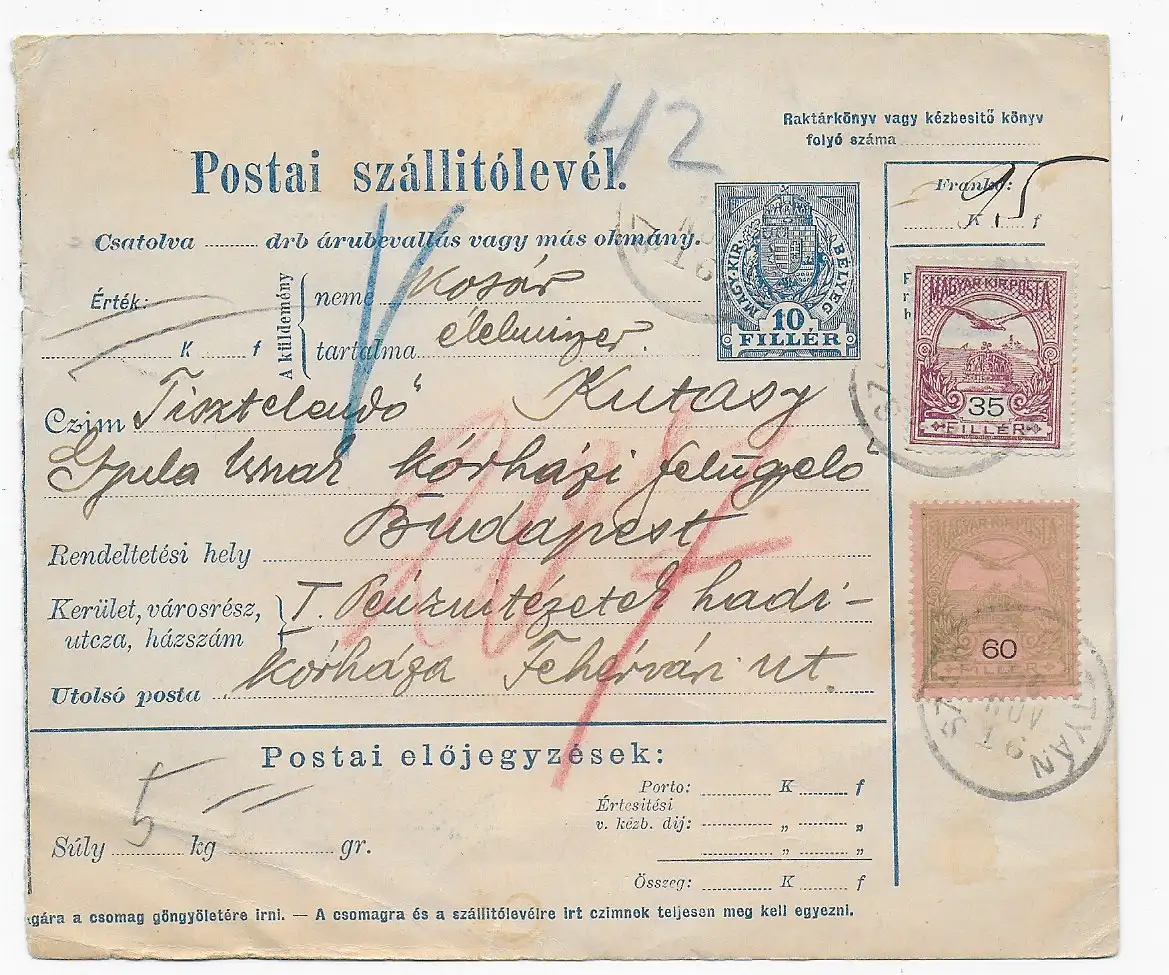 42
Raktárkönyv vagy kézbesitő könyv
folyó száma
Postai szállitólevél.
Csatolva ........ drb árubevallás vagy más okmány.
Frankó:
95
K f
Érték:
K f
A küldemény
neme Kosár
tartalma élelmiszer.
MAGY. KIR. BELYEG
10
FILLÉR
MAGYAR KIR. POSTA
35
FILLÉR
Czim Tisztelendő Kutasy
Gyula Urnak kórházi felügyelő
Budapest
Rendeltetési hely
Kerület, városrész,
utcza, házszám
I. Pénzintézetek hadi-
kórháza Fehérvári ut.
Utolsó posta
MAGYAR KIR. POSTA
60
FILLÉR
NOV
16
TYÁN
Postai előjegyzések:
Porto: K f
Értesitési
v. kézb. dij: „ „
„ „
5
Súly kg gr.
Összeg: K f
gára a csomag göngyöletére irni. — A csomagra és a szállitólevélre irt czimnek teljesen meg kell egyezni.